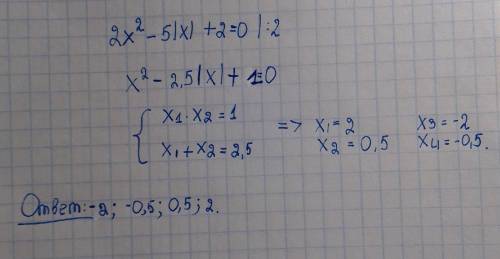 2x² - 5|x| + 2 = 0 | :2
x² - 2,5|x| + 1 = 0
{ x₁ · x₂ = 1
x₁ + x₂ = 2,5
=> x₁ = 2 x₃ = -2
x₂ = 0,5 x₄ = -0,5.
Ответ: -2; -0,5; 0,5; 2.